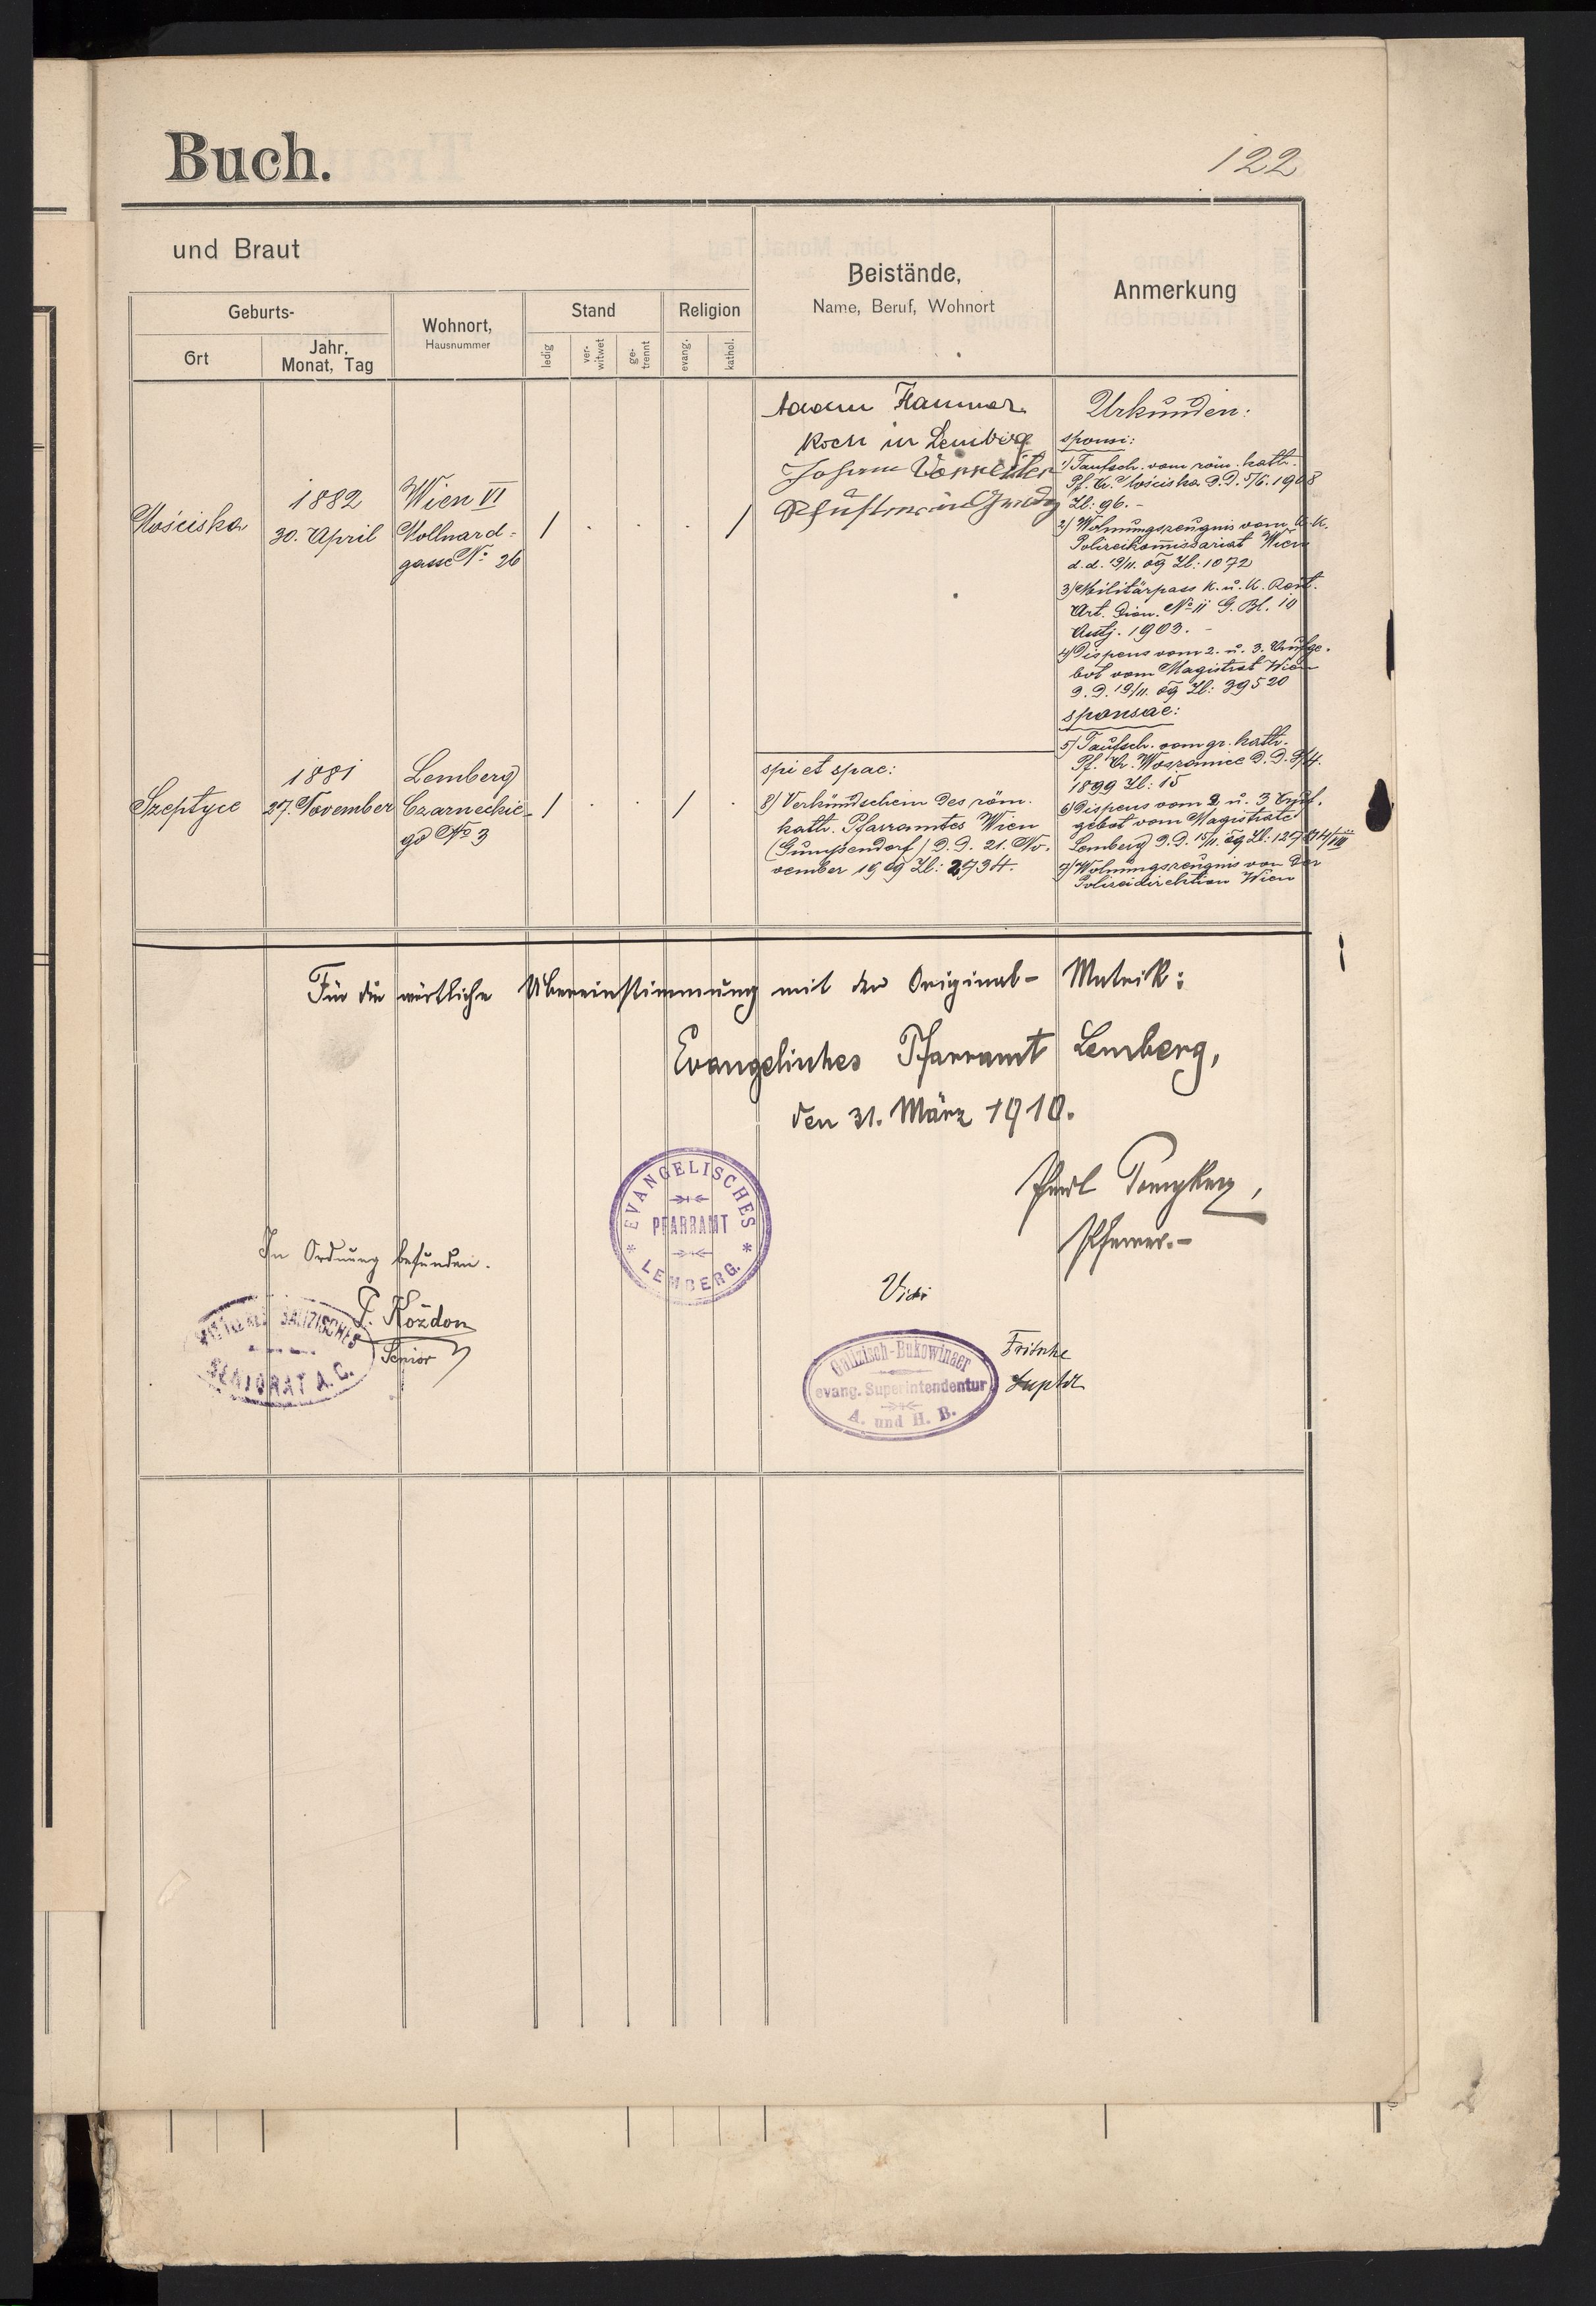 Buch.
122
und Braut
Geburts-
Ort
Jahr,
Monat, Tag
Wohnort,
Hausnummer
Stand
ledig
ver-
witwet
ge-
trennt
Religion
evang.
kathol.
Beistände,
Name, Beruf, Wohnort
Anmerkung
Mościska
1882
30. April
Wien VI
Mollnard-
gasse No 26
/ . . . . /
Adam Hammer
Koch in Lemberg
Johann
Urkunden:
sponsi:
1) Taufsch. vom röm. kath.
Pf. Mościska d. d. 5/6. 1908
Zl: 96. -
2) Wohnungszeugnis vom k. k.
Polizeikommissariat Wien
d. d. 19/11. 09 Zl: 1072
3) Militärpass k. u. k.
Art. Dion. No 11 G. Bl. 10
Asstj. 1903. -
4) Dispens vom 2. u. 3. Aufge-
bot vom Magistrat Wien
d. d. 19/11. 09 Zl: 39520
sponsae:
5) Taufsch. vom gr. kath.
Pf. d. d. 3/4.
1899 Zl: 15
6) Dispens vom 2. u. 3 Auf-
gebot vom Magistrate
Lemberg d. d. 15/11. 09 Zl:
7) Wohnungszeugnis von der
Polizeidirektion Wien
Szeptyce
1881
27. November
Lemberg
Czarneckie-
go No 3
/ . . / .
spi et spae:
8) Verkündschein des röm.
kath. Pfarramtes Wien
(Gumpendorf) d. d. 21. No-
vember 1909 Zl: 2734.
Für die wörtliche Übereinstimmung mit der Original-Matrik:
Evangelisches Pfarramt Lemberg,
den 31. März 1910.
EVANGELISCHES
PFARRAMT
LEMBERG.
Pfarrer. -
In Ordnung befunden.
P. Kożdon
Senior
MITTLERES GALIZISCHES
SENIORAT A. C.
Vidi
Galizisch-Bukowinaer
evang. Superintendentur
A. und H. B.
Fritsche
Suptdt